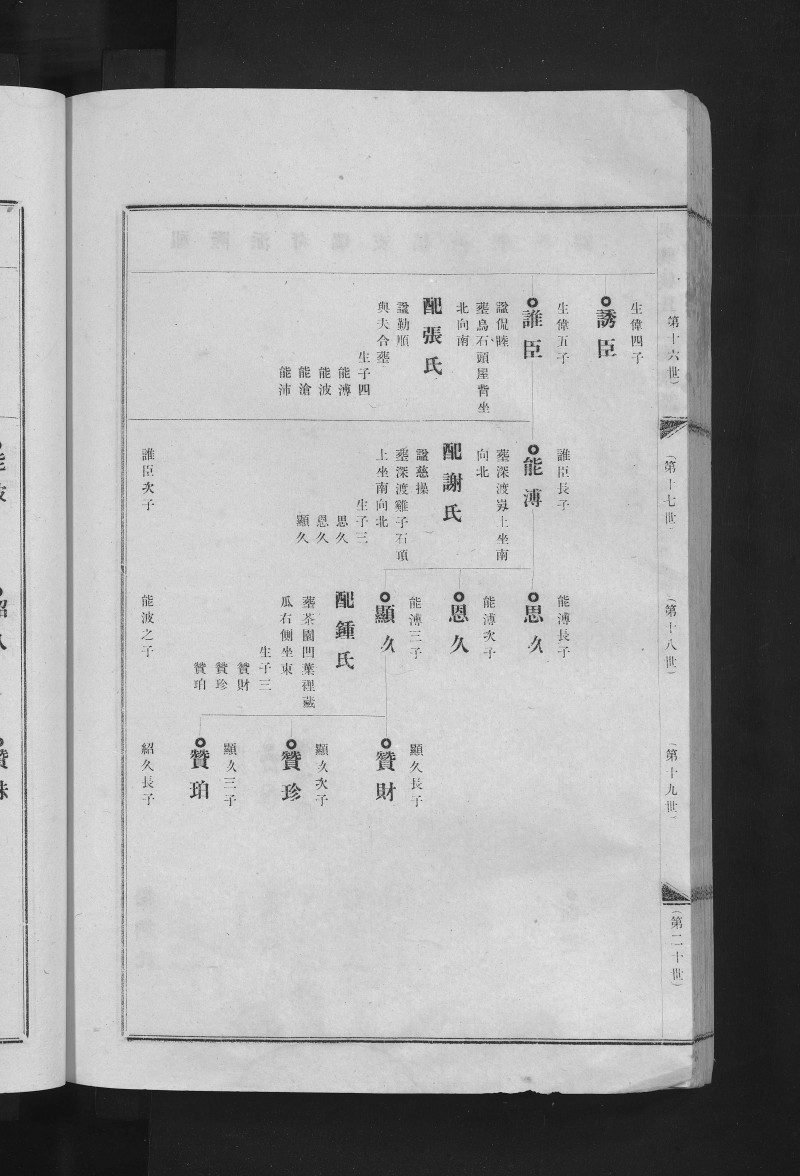 第十六世
生偉四子
誘臣
生偉五子
誰臣
諡侃睦
塟烏石頭屋背坐
北向南
配張氏
諡勤順
與夫合塟
生子四
能溥
能波
能滄
能沛
第十七世
誰臣長子
能溥
塟深渡㟁上坐南
向北
配謝氏
諡慈操
塟深渡雞子石頭
上坐南向北
生子三
思久
恩久
顯久
誰臣次子
第十八世
能溥長子
思久
能溥次子
恩久
能溥三子
顯久
配鍾氏
塟茶園凹葉裡藏
瓜右側坐東
生子三
贊財
贊珍
贊珀
能波之子
第十九世
顯久長子
贊財
顯久次子
贊珍
顯久三子
贊珀
紹久長子
第二十世